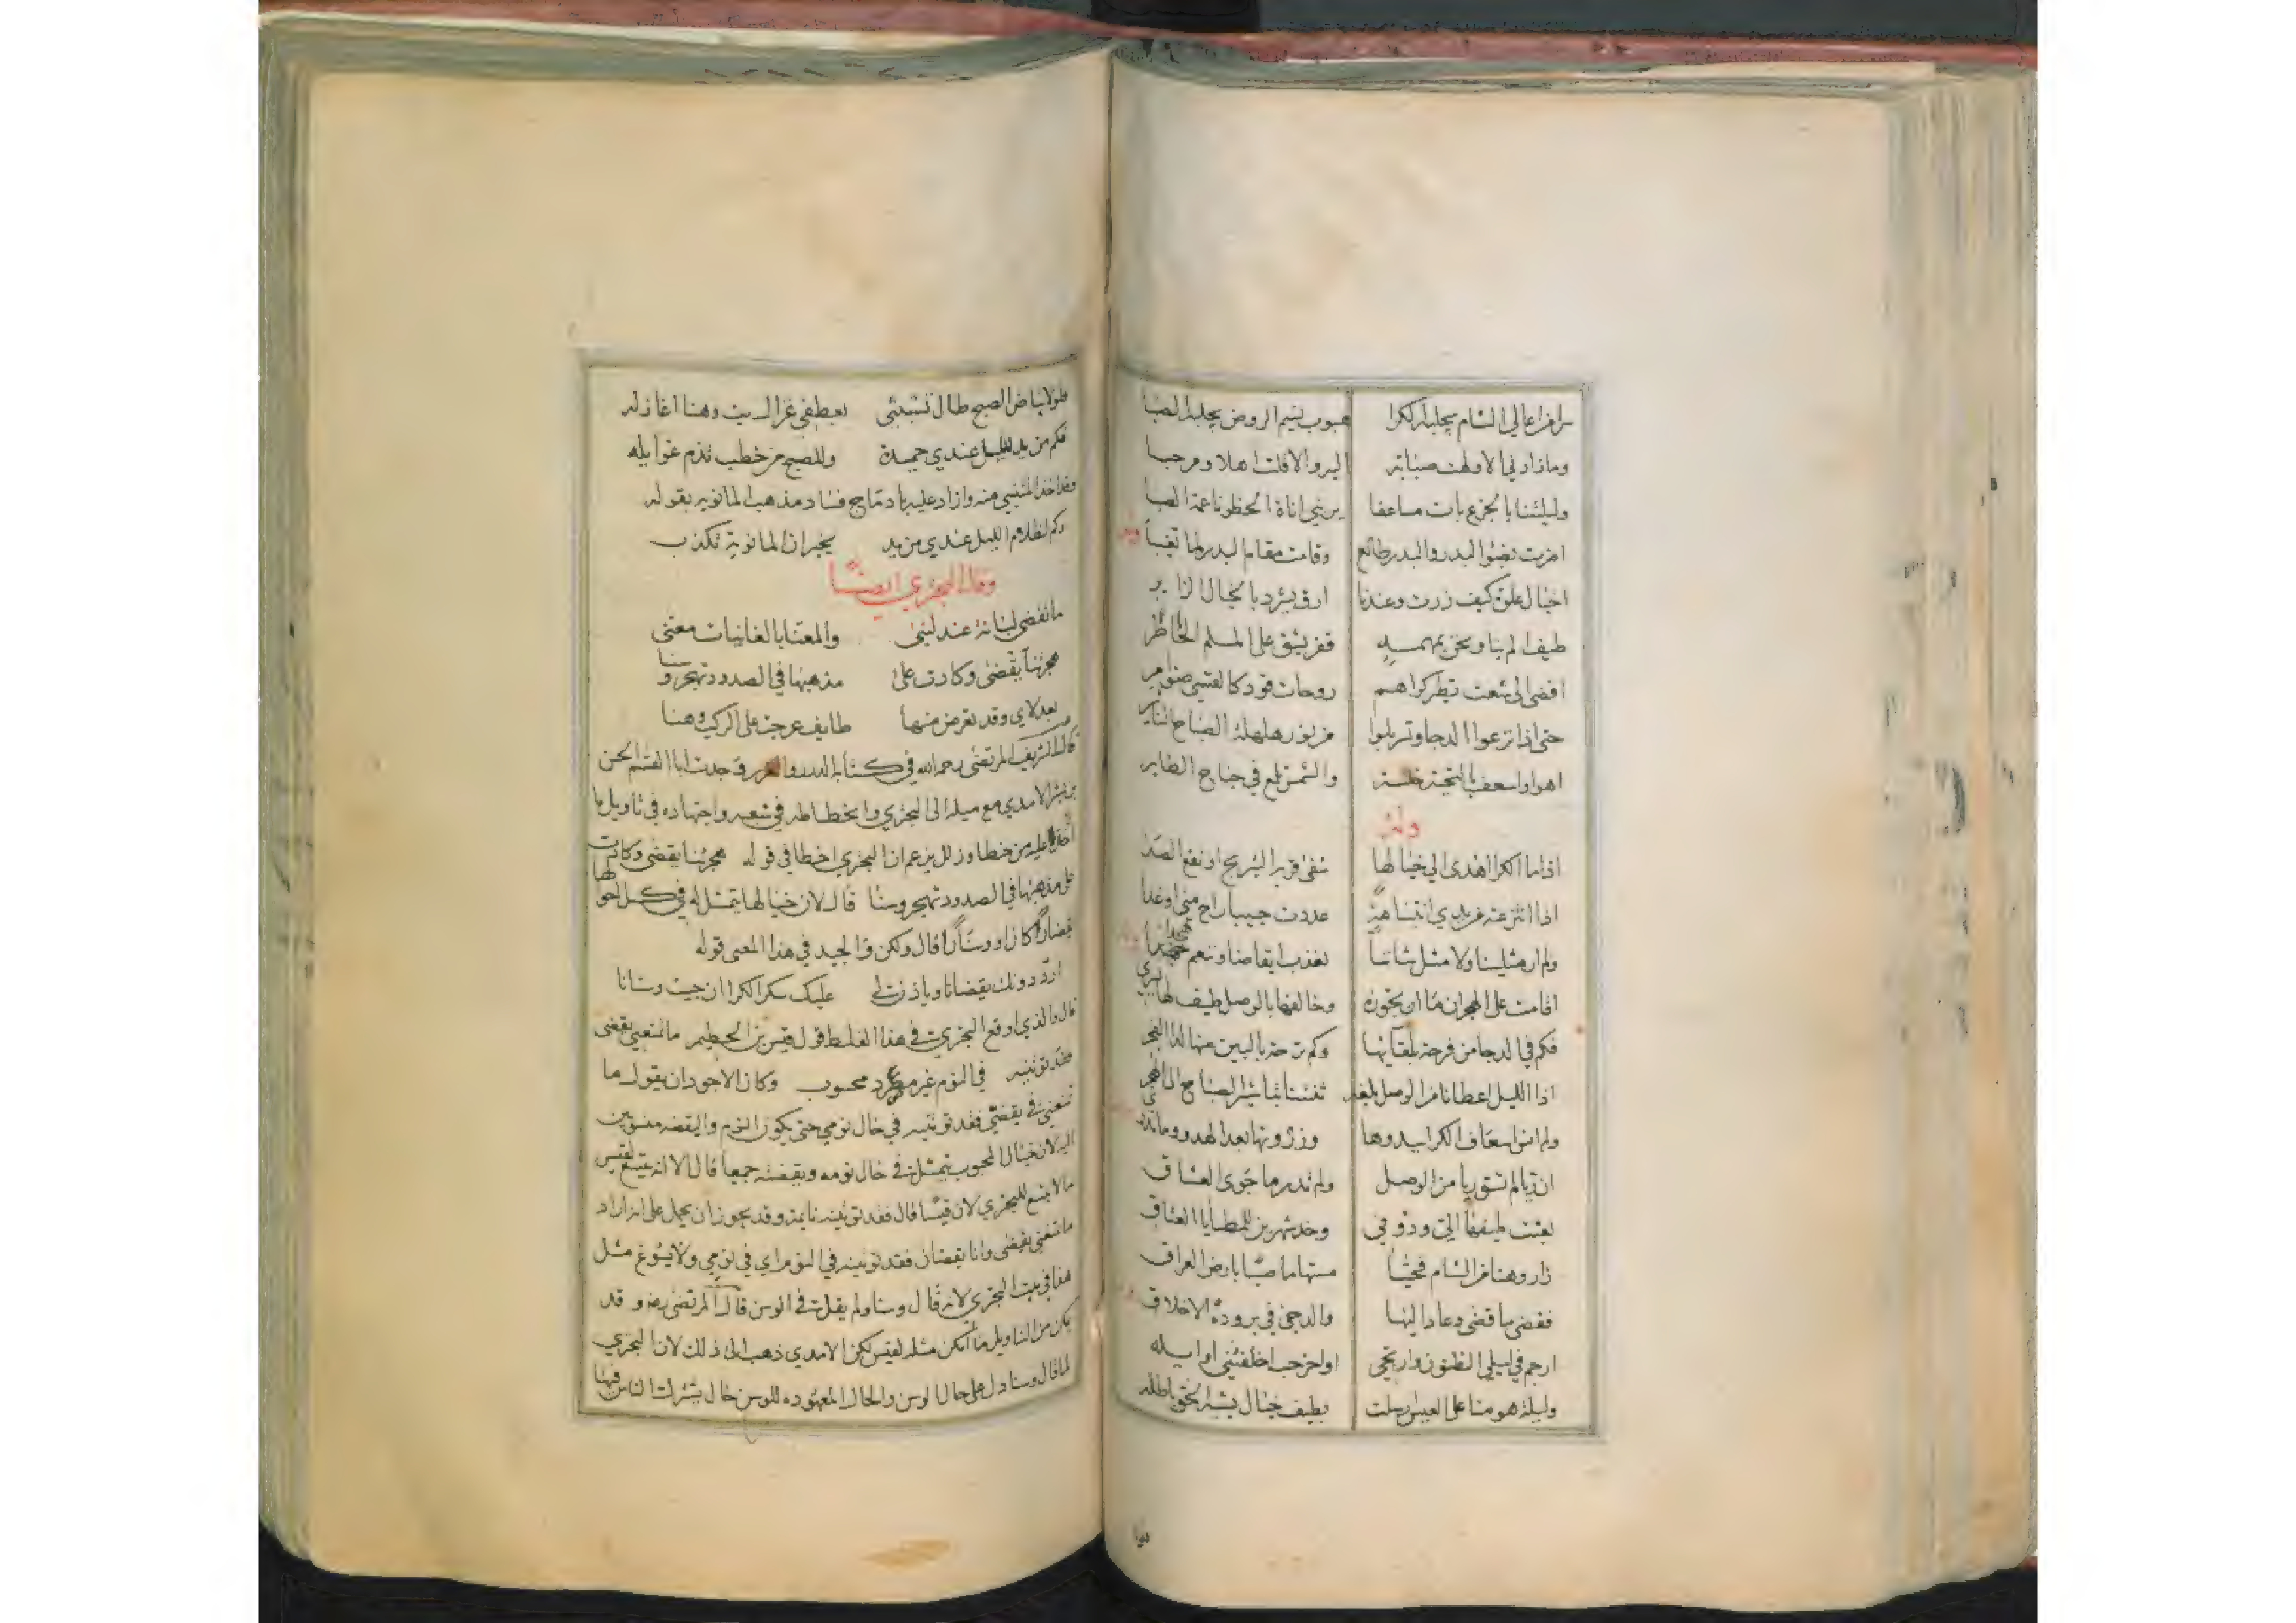 سرا من اعالي الشام يجلبه الكرا هبوب نسيم الروض يجلبه الصبا
وما زارني الا ولهت صبابة اليه والا قلت اهلا ومرحبا
وليلتنا بالجزع بات مساعفا يريني اناة الخطو ناعمة الصبا
اضرت بضوء البدر والبدر طالع وقامت مقام البدر لما تغيبا
اخيال علوة كيف زرت وعندنا ارق يشرد بالخيال الزاير
طيف الم بنا ونحن بمهمه قفر يشق على الملم الخاطر
افضى الى شعث تطير كراهم روحات قود كالقسي ضوامر
حتى اذا نزعوا الدجا وتسربلوا من نور هلهلة الصباح الناير
اهوا واسعف بالتحية خلسة والشمس تلمع في جناح الطاير
وله
اذا ما الكرا اهدى الي خيالها شفى قربه التبريح او نقع الصدا
اذا انتزعته من يدي انتباهة عددت حبيبا راح مني او غدا
ولم ار مثلينا ولا مثل شاننا نعذب ايقاضا وننعم هجدا
اقامت على الهجران ما ان تجوزه وخالفها بالوصل طيف لها يسري
فكم في الدجا من فرحة بلقائها وكم ترحة بالبين منها لدا الفجر
اذا الليل اعطانا من الوصل بلغة ثنتنا تباشير الصباح الى الهجر
ولم انس اسعاف الكرا بدنوها وزورتها بعد الهدو وما تدري
ان ريا لم تسق ريا من الوصل ولم تدر ما جوى العشاق
بعثت طيفها الي ودوني وخد شهرين للمطايا العتاق
زار وهنا من الشام فحيا مستهاما صبا بارض العراق
فقضى ما قضى وعاد اليها والدجى في بروده الاخلاق
ارجم في ليلى الظنون وارتجي اواخر حب اخلفتني اوايله
وليلة هومنا على العيس ارسلت بطيف خيال يشبه الحق باطله
فلولا بياض الصبح طال تشبثي بعطفي غزال بت وهنا اغازله
فكم من يد لليل عندي حميدة وللصبح من خطب تذم غوايله
وقد اخذ المتنبي منه وازاد عليه بادماج فساد مذهب المانوية بقوله
وكم لظلام الليل عندي من يد يخبر ان المانوية تكذب
وقال البحتري ايضا
ما تقضى لبانة عند لبنى والمعنا بالغانيات معنى
هجرتنا يقضى وكادت على مذهبها في الصدود تهجر وسنا
بعد لاي وقد تعرض منها طايف عرجت على الركب وهنا
قال الشريف المرتضى رحمه الله في كتابه الدرر والغرر وجدت ابا القسم الحسن
بن بشر الامدي مع ميله الى البحتري وانحطاطه في شعبه واجتهاده في تاويل ما
اخذ عليه من خطا وزلل يزعم ان البحتري اخطا في قوله هجرتنا يقضى وكادت
على مذهبها في الصدود تهجر وسنا قال لان خيالها يتمثل له في كل احوالها
يقضانا كان او وسنانا قال ولكن الجيد في هذا المعنى قوله
ارد دونك يقضانا وياذن لي عليك سكر الكرا ان جيت وسنانا
قال والذي اوقع البحتري في هذا الغلط قول قيس بن الخطيم ما تمنعي يقضى
فقد توتينه في النوم غير مصرد محسوب وكان الاجود ان يقول ما
تمنعي في يقضتي فقد توتينه في حال نومي حتى يكون النوم واليقضه منسوبين
اليه لان خيال المحبوب يتمثل في حال نومه ويقضته جميعا قال الا انه يتسع لقيس
ما لا يتسع للبحتري لان قيسا قال فقد توتينه نايمة وقد يجوز ان يحمل على انه اراد
ما تمنعي يقضى وانا يقضان فقد توتينه في النوم اي في نومي ولا يسوغ مثل
هذا في بيت البحتري لانه قال وسنا ولم يقل في الوسن قال المرتضى رضه وقد
يمكن من التاويل ما امكن مثله لقيس لكن الامدي ذهب الى ذلك لان البحتري
لما قال وسنا دل على حال الوسن والحال المعهوده للوسن حال يشترك الناس فيها